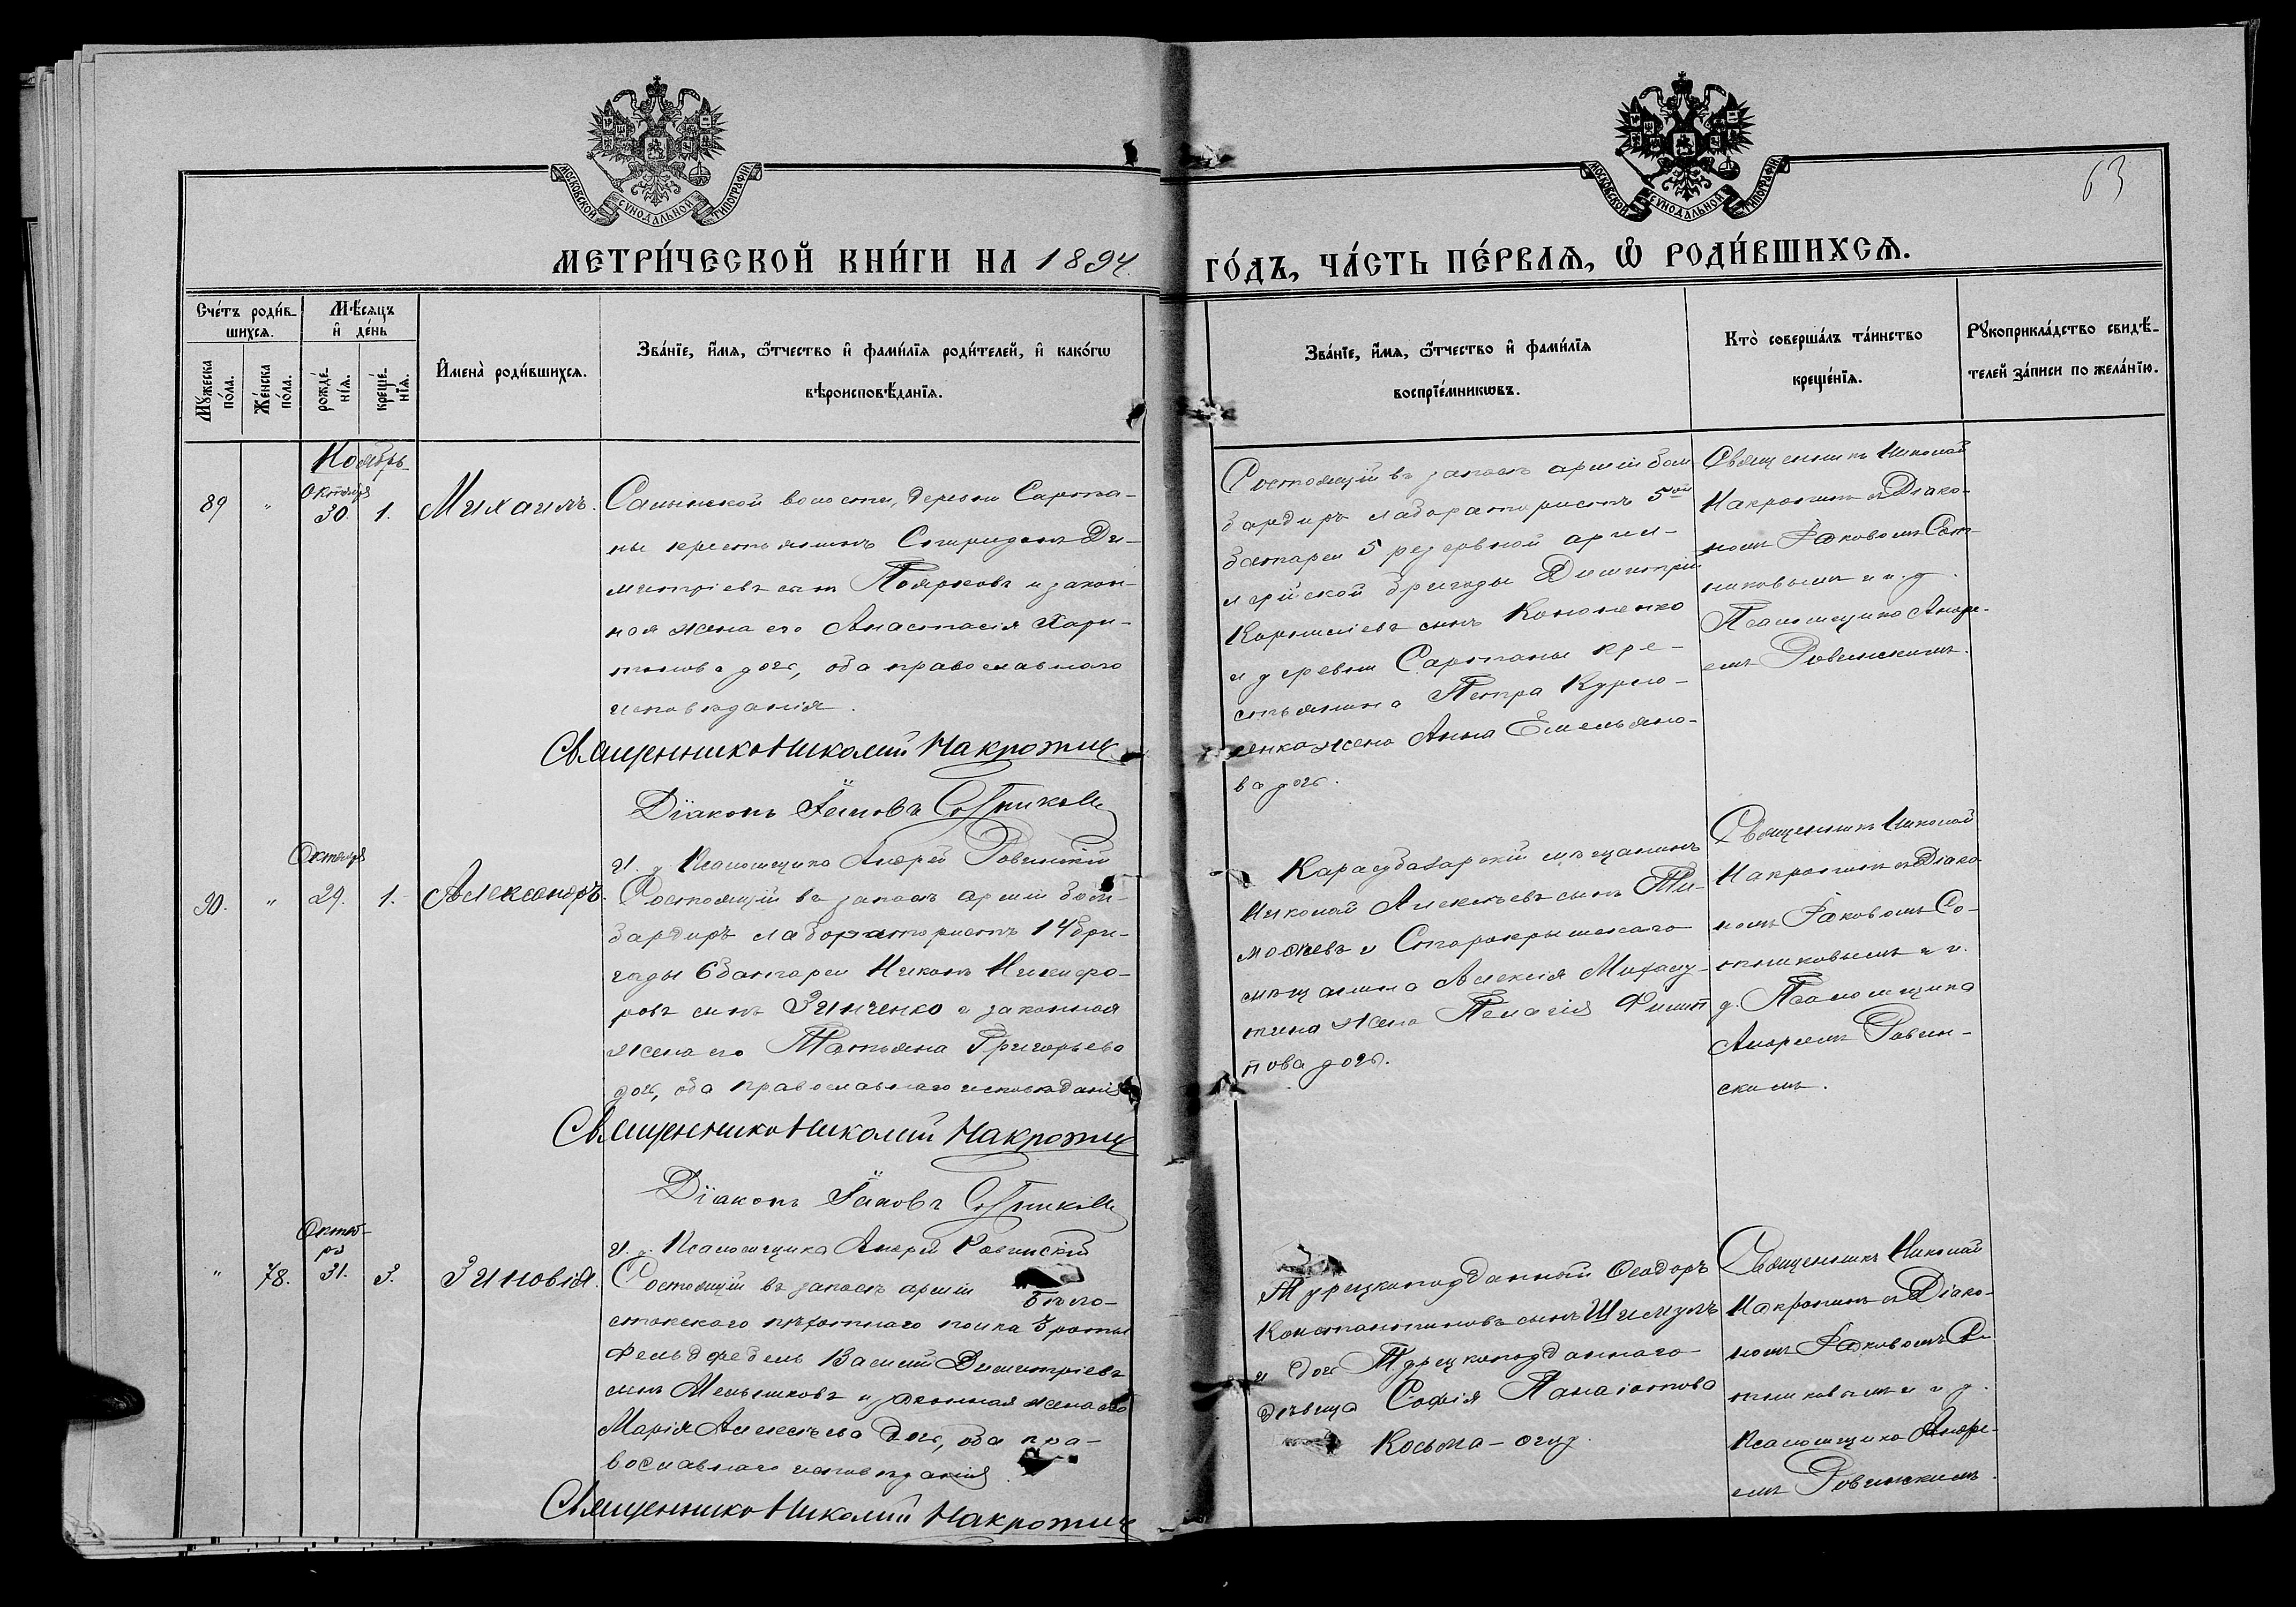 МОСКОВСКОЙ СѴНОДАЛЬНОЙ ТИПОГРАФІИ
МОСКОВСКОЙ СѴНОДАЛЬНОЙ ТИПОГРАФІИ
63
МЕТРИ́ЧЕСКОЙ КНИ́ГИ НА 1894.
ГО́ДЪ, ЧА́СТЬ ПЕ́РВАѦ, Ѿ РОДИ́ВШИХСѦ.
Сче́тъ роди́в-
шихсѧ.
Мꙋ́жеска
по́ла.
Же́нска
по́ла.
Мѣ́сѧцъ
и҆ де́нь
рожде́-
нїѧ.
креще́-
нїѧ.
И҆мена̀ роди́вшихсѧ.
Зва́нїе, и҆́мѧ, ѻ҆́тчество и҆ фами́лїѧ роди́телей, и҆ како́гѡ
вѣроисповѣ́данїѧ.
Зва́нїе, и҆́мѧ, ѻ҆́тчество и҆ фами́лїѧ
воспрїе́мникѡвъ.
Кто̀ соверша́лъ та́инство
креще́нїѧ.
Рꙋкоприкла́дство свидѣ́-
телей за́писи по жела́нїю.
Ноябрь
89
"
Октября
30.
1.
Михаилъ.
Салынской волости, деревни Сарта-
ны крестьянинъ Спиридонъ Ди-
митріевъ сынъ Поярковъ и закон-
ная жена его Анастасія Хари-
тонова дочь, оба православнаго
исповѣданія.
Священникъ Николай Макрожиц
Діаконъ Іаковъ Сотниковъ
И. д. Псаломщика Андрей Ровинскій
Состоящій въ запасѣ арміи бом-
бардиръ лаборатористъ 5ой
батареи 5 резервной артил-
лерійской бригады Димитрій
Корниліевъ сынъ Кононенко
и деревни Сартаны кре-
стьянина Петра Курно-
сенка жена Анна Емельяно-
ва дочь.
Священникъ Николай
Діако-
номъ Іаковомъ Сот-
никовымъ и и. д.
Псаломщика Андре-
емъ Ровинскимъ.
90.
"
Октября
29.
1.
Александръ.
Состоящій въ запасѣ арміи бом-
бардиръ лаборатористъ 14 бри-
гады 6 батареи Никонъ Никифо-
ровъ сынъ Зинченко и законная
жена его Татьяна Григорьева
дочь, оба православнаго исповѣданія
Священникъ Николай Макрожиц
Діаконъ Іаковъ Сотниковъ
И. д. Псаломщика Андрей Ровинскій
Карасубазарскій мѣщанинъ
Николай Алексѣевъ сынъ Ти-
мофѣевъ и Старокрымскаго
мѣщанина Алексія
жена Пелагія Филип-
пова дочь.
Священникъ Николай
Діако-
номъ Іаковомъ Со-
тниковымъ и и.
д. Псаломщика
Андреемъ Ровин-
скимъ.
"
78.
Октяб-
ря
31.
3.
Зиновія.
Состоящій въ запасѣ арміи Бѣло-
стокскаго пѣхотнаго полка 3 роты
фельдфебель Василій Димитріевъ
сынъ Мельниковъ и законная жена его
Марія Алексѣева дочь, оба пра-
вославнаго исповѣданія.
Священникъ Николай Макрожиц
Турецкоподданный Ѳеодоръ
Константиновъ сынъ
и дочь Турецкоподданнаго
дѣвица Софія Панаіотова
Косьма-оглу.
Священникъ Николай
Діако-
номъ Іаковомъ Со-
тниковымъ и и. д.
Псаломщика Андре-
емъ Ровинскимъ.